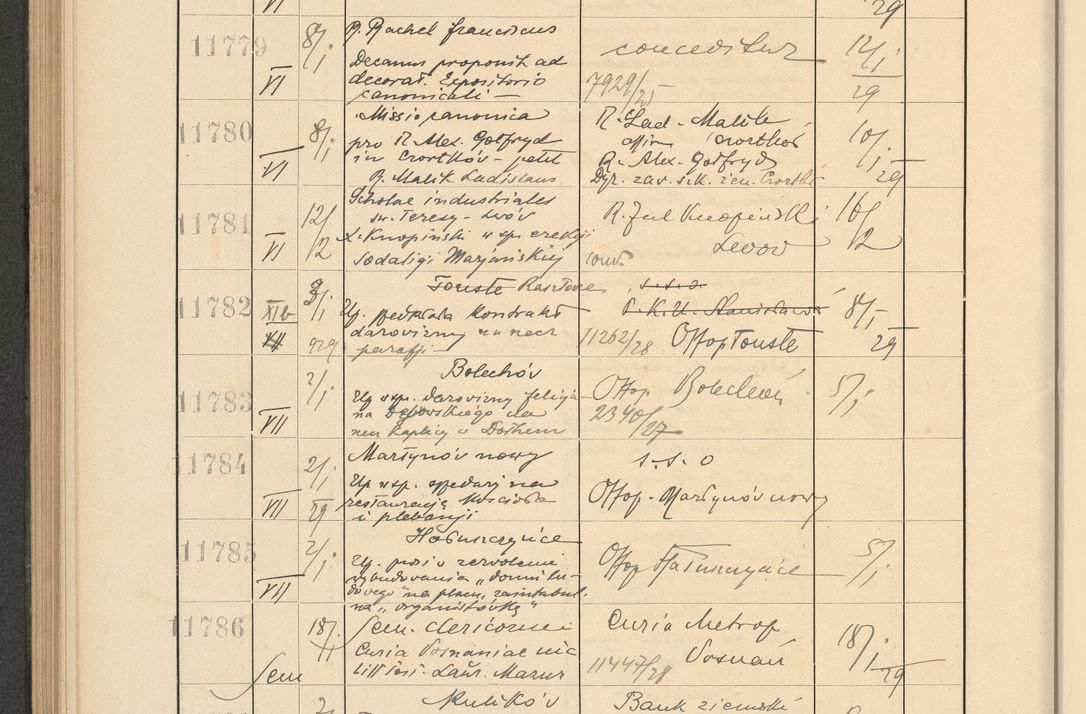 VI 29
11779 8/I VI
R. Rachel Franciscus
Decanus proponit ad
decorat. Expositorio
canonicali —
conceditur
7929/25
12/I 29
11780 8/I VI
Missio canonica
pro R. Alex. Gotfryd
in Czortków - petit
R. Malik Ladislaus
R. Lad. Malik
Czortków
R. Alex. Gotfryd
Dyr. zav. szk. żeń. Czortk.
10/I 29
11781 12/2 VI
Scholae industriales
św. Teresy - Lwów
X. Knopiński w sp. erekcji
Sodalicji Marjańskiej
R. Jul Knopiński
Lwów
16/2
11782 XII 2/I 929
Touste
Up. kontrakt
darowizny na rzecz
parafji
s.s.o.
P.K.U. Stanisławów
11262/28 Offop Touste
8/I 29
11783 2/I VII
Bolechów
Up wsp. darowizny felicja
na
rzecz kaplicy w Dołhem
Offop Bolechów
2340/27
5/I
11784 2/I 29 VII
Martynów nowy
Up wsp. sprzedaży na
restaurację kościoła
i plebanji
s.s.o
Offop. Martynów nowy
11785 2/I VII
Hałuszczyńce
Up. prosi o zezwolenie
wybudowania „domu lu-
dowego na placu, zaintabul.
na „organistówkę"
Offop Hałuszczyńce
5/I
11786 18/I Sem
Sem. clericorum
Curia Posnaniae nic
litt test. Laur. Mazur
Curia Metrop
Poznań
11447/28
18/I 29
2/
Kulików
Bank ziemski